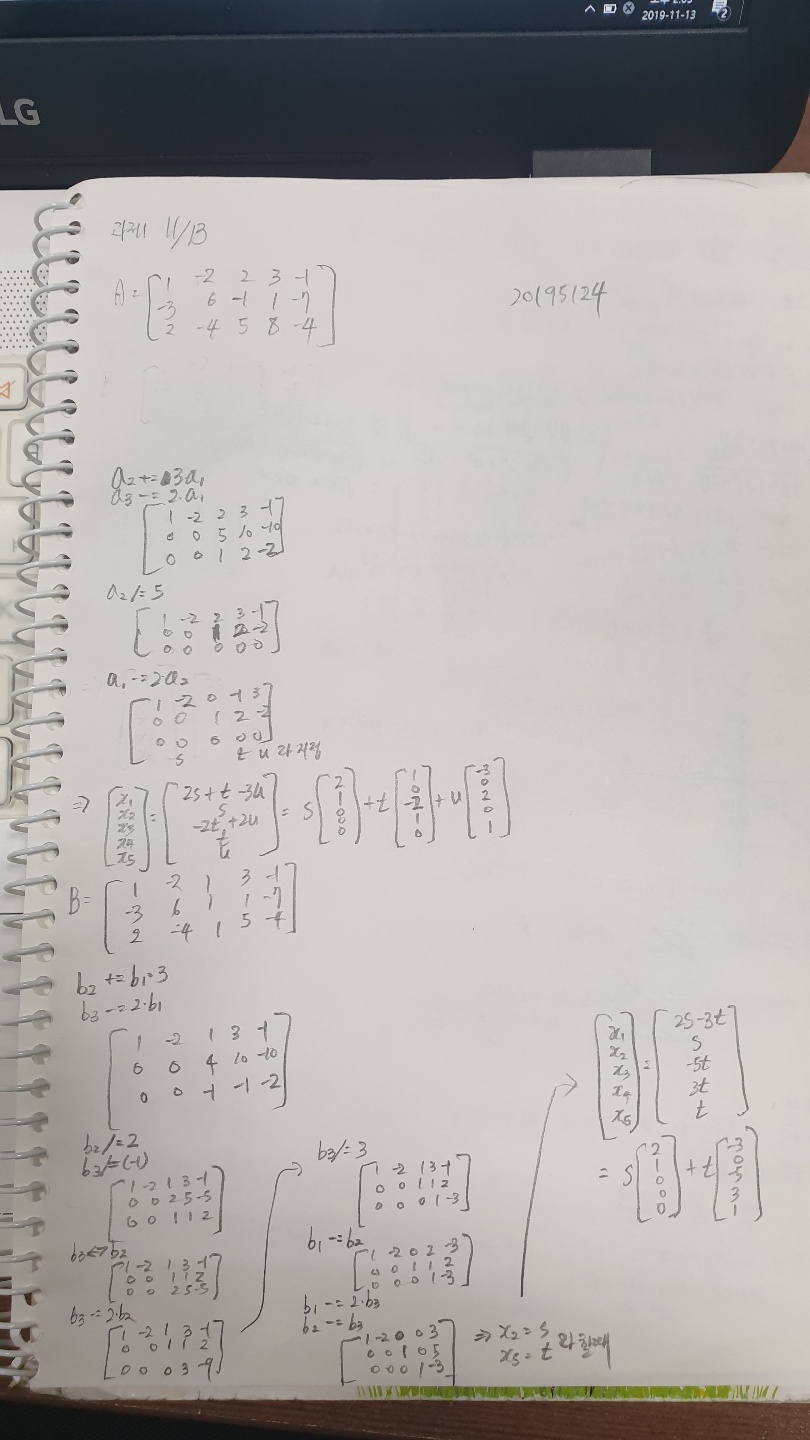 2019-11-13
2
LG
과제 11/13
20195124
A = [ 1 -2 2 3 -1
-3 6 -1 1 -7
2 -4 5 8 -4 ]
a2 += 3a1
a3 -= 2·a1
[ 1 -2 2 3 -1
0 0 5 10 -10
0 0 1 2 -2 ]
a2 /= 5
[ 1 -2 2 3 -1
0 0 1 2 -2
0 0 0 0 0 ]
a1 -= 2a2
[ 1 -2 0 -1 3
0 0 1 2 -2
0 0 0 0 0 ]
s t u 라 지정
⇒ [ x1 x2 x3 x4 x5 ] = [ 2s+t-3u s -2t+2u t u ] = s[ 2 1 0 0 0 ] + t[ 1 0 -2 1 0 ] + u[ -3 0 2 0 1 ]
B = [ 1 -2 1 3 -1
-3 6 1 1 -7
2 -4 1 5 -4 ]
b2 += b1·3
b3 -= 2·b1
[ 1 -2 1 3 -1
0 0 4 10 -10
0 0 -1 -1 -2 ]
b2 /= 2
b3 /= (-1)
[ 1 -2 1 3 -1
0 0 2 5 -5
0 0 1 1 2 ]
b3 <-> b2
[ 1 -2 1 3 -1
0 0 1 1 2
0 0 2 5 -5 ]
b3 -= 2·b2
[ 1 -2 1 3 -1
0 0 1 1 2
0 0 0 3 -9 ]
b3 /= 3
[ 1 -2 1 3 -1
0 0 1 1 2
0 0 0 1 -3 ]
b1 -= b2
[ 1 -2 0 2 -3
0 0 1 1 2
0 0 0 1 -3 ]
b1 -= 2·b3
b2 -= b3
[ 1 -2 0 0 3
0 0 1 0 5
0 0 0 1 -3 ]
⇒ x2 = s
x5 = t 라 할때
[ x1 x2 x3 x4 x5 ] = [ 2s-3t s -5t 3t t ]
= s[ 2 1 0 0 0 ] + t[ -3 0 -5 3 1 ]